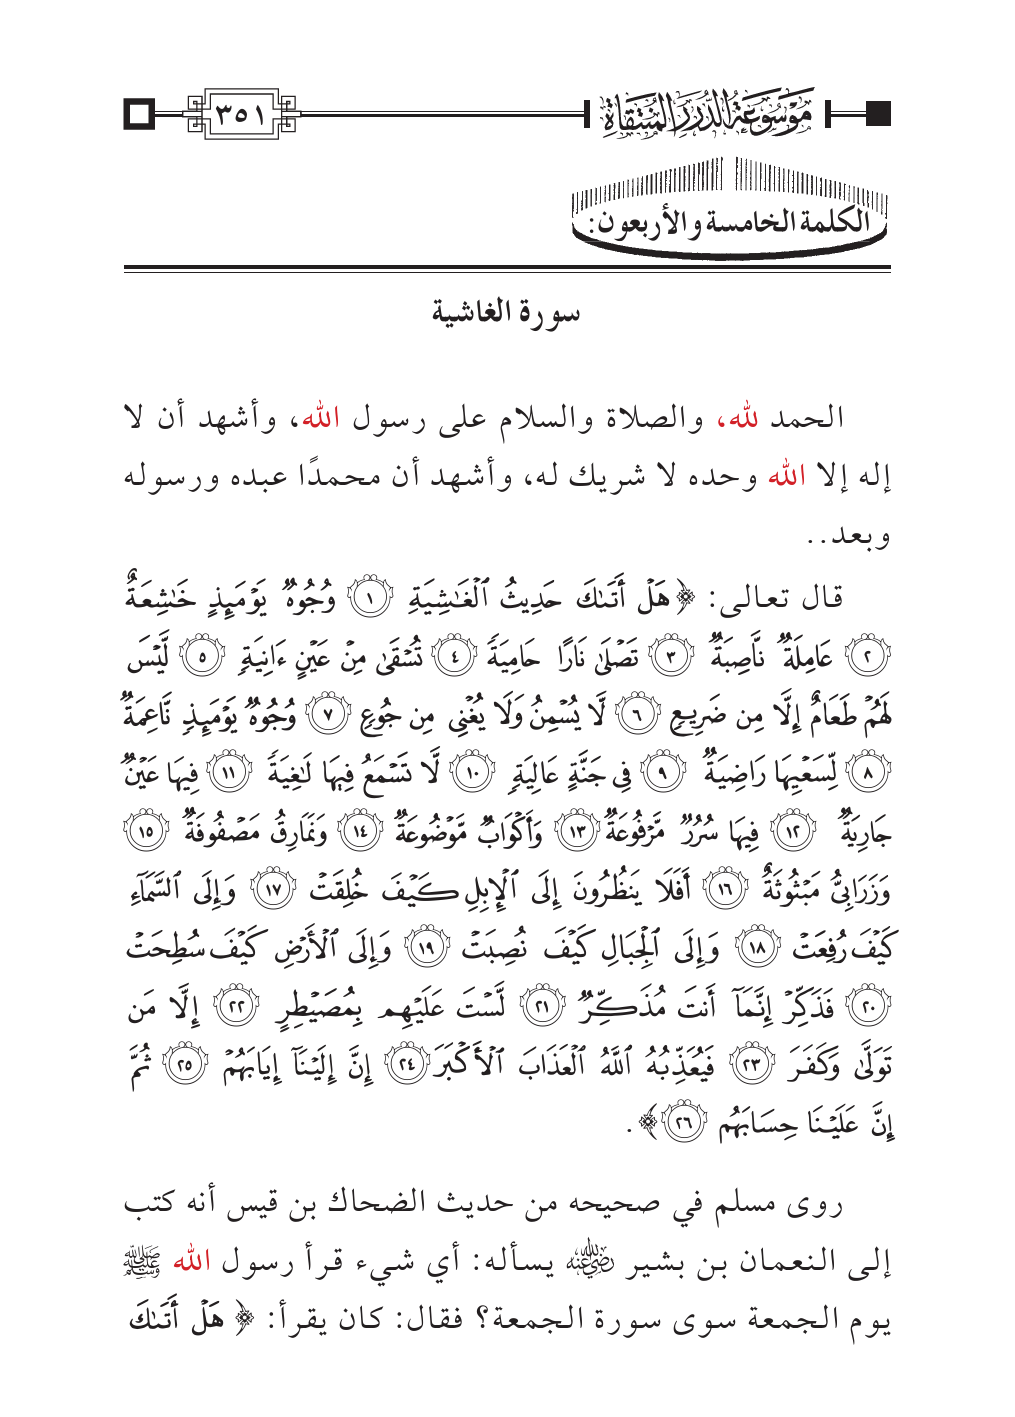 موسوعة الدرر المنتقاة
٣٥١
الكلمة الخامسة والأربعون:
سورة الغاشية
الحمد لله، والصلاة والسلام على رسول الله، وأشهد أن لا
إله إلا الله وحده لا شريك له، وأشهد أن محمدًا عبده ورسوله
وبعد..
قال تعالى: ﴿هَلْ أَتَىٰكَ حَدِيثُ ٱلْغَٰشِيَةِ ١ وُجُوهٌ يَوْمَئِذٍ خَٰشِعَةٌ
٢ عَامِلَةٌ نَّاصِبَةٌ ٣ تَصْلَىٰ نَارًا حَامِيَةً ٤ تُسْقَىٰ مِنْ عَيْنٍ ءَانِيَةٍ ٥ لَّيْسَ
لَهُمْ طَعَامٌ إِلَّا مِن ضَرِيعٍ ٦ لَّا يُسْمِنُ وَلَا يُغْنِى مِن جُوعٍ ٧ وُجُوهٌ يَوْمَئِذٍ نَّاعِمَةٌ
٨ لِّسَعْيِهَا رَاضِيَةٌ ٩ فِى جَنَّةٍ عَالِيَةٍ ١٠ لَّا تَسْمَعُ فِيهَا لَٰغِيَةً ١١ فِيهَا عَيْنٌ
جَارِيَةٌ ١٢ فِيهَا سُرُرٌ مَّرْفُوعَةٌ ١٣ وَأَكْوَابٌ مَّوْضُوعَةٌ ١٤ وَنَمَارِقُ مَصْفُوفَةٌ ١٥
وَزَرَابِىُّ مَبْثُوثَةٌ ١٦ أَفَلَا يَنظُرُونَ إِلَى ٱلْإِبِلِ كَيْفَ خُلِقَتْ ١٧ وَإِلَى ٱلسَّمَآءِ
كَيْفَ رُفِعَتْ ١٨ وَإِلَى ٱلْجِبَالِ كَيْفَ نُصِبَتْ ١٩ وَإِلَى ٱلْأَرْضِ كَيْفَ سُطِحَتْ
٢٠ فَذَكِّرْ إِنَّمَآ أَنتَ مُذَكِّرٌ ٢١ لَّسْتَ عَلَيْهِم بِمُصَيْطِرٍ ٢٢ إِلَّا مَن
تَوَلَّىٰ وَكَفَرَ ٢٣ فَيُعَذِّبُهُ ٱللَّهُ ٱلْعَذَابَ ٱلْأَكْبَرَ ٢٤ إِنَّ إِلَيْنَآ إِيَابَهُمْ ٢٥ ثُمَّ
إِنَّ عَلَيْنَا حِسَابَهُم ٢٦﴾.
روى مسلم في صحيحه من حديث الضحاك بن قيس أنه كتب
إلى النعمان بن بشير رضي الله عنه يسأله: أي شيء قرأ رسول الله ﷺ
يوم الجمعة سوى سورة الجمعة؟ فقال: كان يقرأ: ﴿هَلْ أَتَىٰكَ